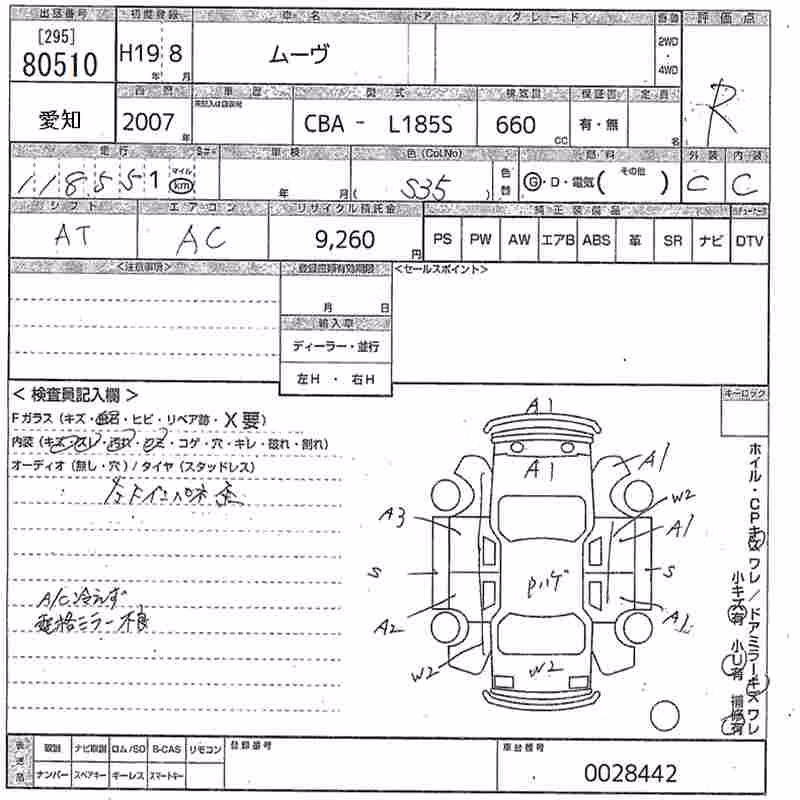 出品番号 初度登録 車名 ドア グレード 評価点
[295]
80510 H19年 8月 ムーヴ 2WD・4WD R
愛知 2007年 型式 CBA - L185S 排気量 660cc 保証書 有・無 定員 名
走行 車検 色(Col.No) 燃料 外装 内装
118551 マイル km 年 月 ( S35 ) 色替 G・D・電気( その他 ) C C
シフト エアコン リサイクル預託金 純正装備品
AT AC 9,260円 PS PW AW エアB ABS 革 SR ナビ DTV
<注意事項> <セールスポイント>
月 日
輸入車
ディーラー・並行
左H ・ 右H
< 検査員記入欄 > キーロック
Fガラス(キズ・飛石・ヒビ・リペア跡・X要)
内装(キズ・スレ・汚れ・シミ・コゲ・穴・キレ・破れ・割れ)
オーディオ(無し・穴)/タイヤ(スタッドレス)
A1
A1 A1
W2
A3 A1
S S
A/C冷えず
電格ミラー不良
A2 A1
W2 W2
ホイル・CPキズ ワレ/ドアミラーキズ ワレ
小キズ有 小U有 補修有
取説 ナビ取説 ロム/SD B-CAS リモコン 登録番号 車台番号
ナンバー スペアキー キーレス スマートキー 0028442